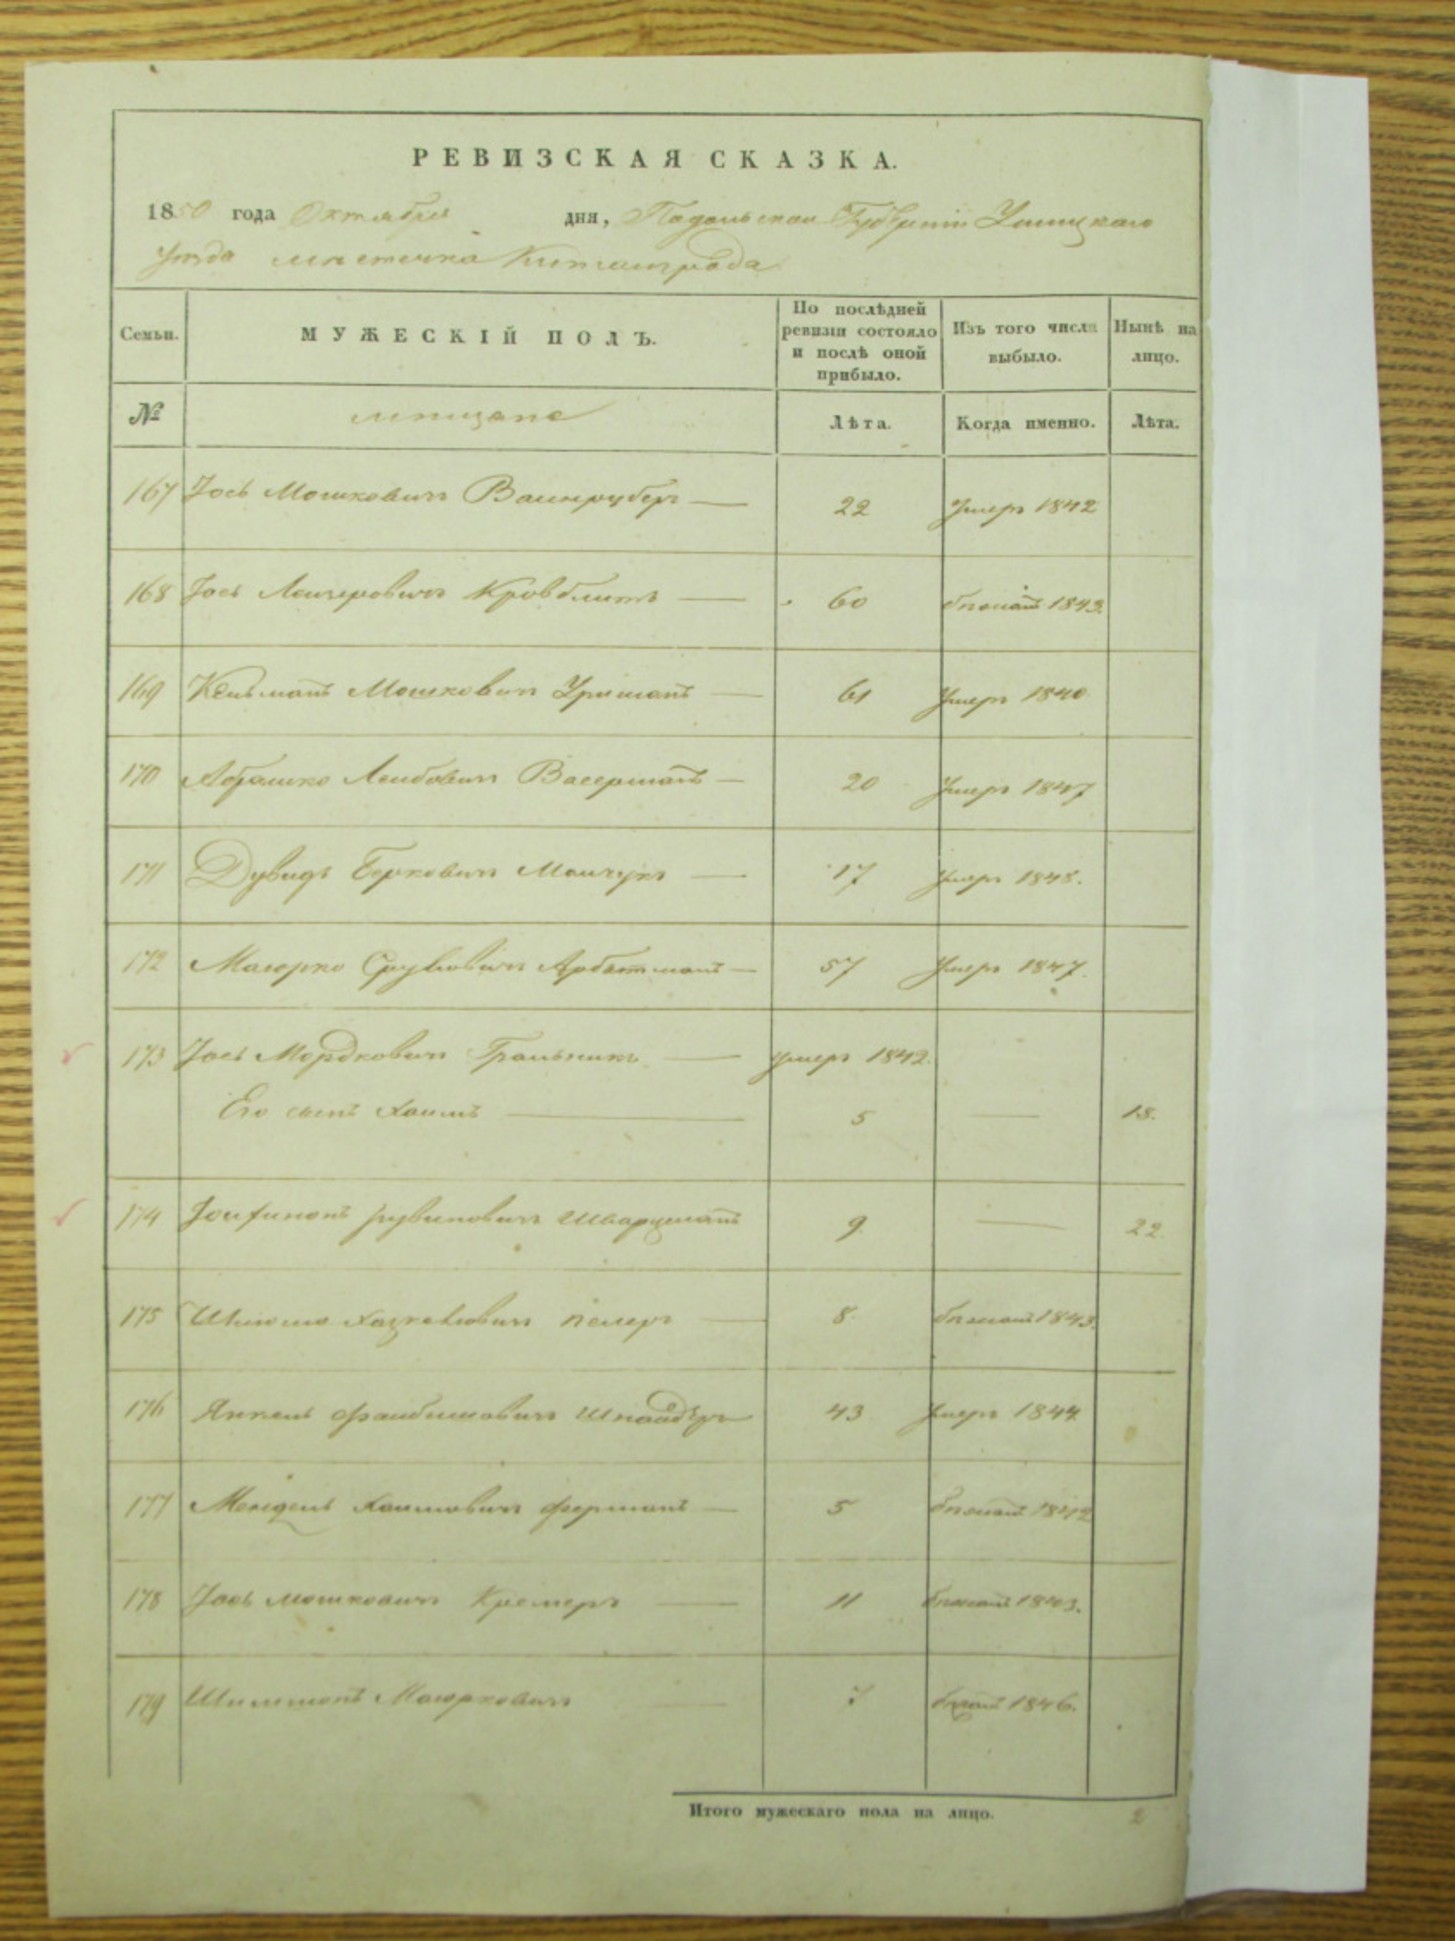 РЕВИЗСКАЯ СКАЗКА.
1850 года Октября дня, Подольской Губернии Ушицкаго
уезда местечка Китайгрода
Семьи. МУЖЕСКІЙ ПОЛЪ. По послѣдней ревизіи состояло и послѣ оной прибыло. Изъ того числа выбыло. Нынѣ на лицо.
№ мещане Лѣта. Когда именно. Лѣта.
167 Іось Мошковичъ 22 Умеръ 1842
168 Іось Лейзеровичъ 60 бежалъ 1843.
169 Кельманъ Мошковичъ 61 Умеръ 1840
170 Абрашко Лейбовичъ Васерманъ 20 Умеръ 1847
171 Дувидъ Берковичъ 17 Умеръ 1848.
172 Маіорко Сруліовичъ 57 Умеръ 1847.
173 Іось Мордковичъ умеръ 1842.
Его сынъ Хаимъ 5 18.
174 Рувиновичъ Шварцманъ 9 22.
175 Шліома 8 бежалъ 1843.
176 Янкель Файбишовичъ Шнайдеръ 43 Умеръ 1844
177 Мендель Хаимовичъ Ферманъ 5 бежалъ 1842
178 Іось Мошковичъ Кремеръ 11 бежалъ 1843.
179 Маіорковичъ 7 бежалъ 1846.
Итого мужескаго пола на лицо. 2